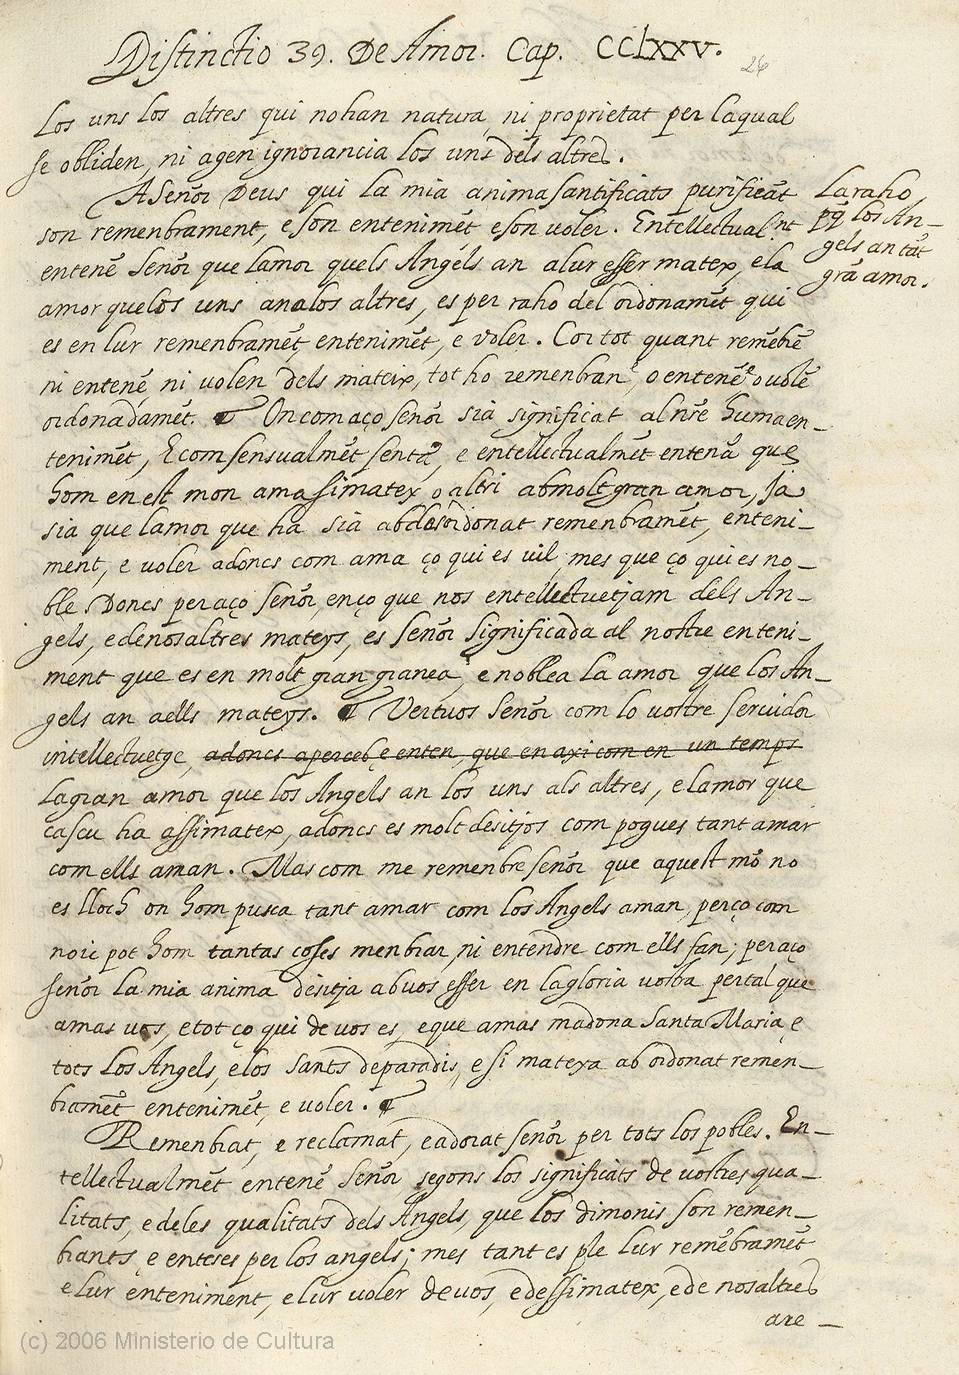 Distinctio 39. De Amor. Cap. CCLXXV.
26
Los uns los altres qui nohan natura, ni proprietat per laqual
se obliden, ni agen ignorancia los uns dels altres.
A Señor Deus qui la mia anima santificats purificat
son remenbrament, e son entenimēt e son voler. Entellectualmt
entenē Señor que lamor quels Angels an alur esser matex, e la
amor quelos uns analos altres, es per raho del ordonamēt qui
es en lur remenbramēt, entenimēt, e voler. Cor tot quant remēbrē
ni entenē, ni volen dels mateix, tot ho remenbran, o entenē o volē
ordonadamēt. On com aço señor sia significat al nr̄e humaen-
tenimēt, E com sensualmēt sentā, e entellectualmēt entenā que
hom en est mon ama simatex o altri abmolt gran amor, Ja
sia que lamor que ha sia abdesordonat remenbramēt, enteni-
ment, e voler adoncs com ama ço qui es vil, mes que ço qui es no-
ble. Doncs peraço señor, enço que nos entellectuetjam dels An-
gels, edenosaltres mateys, es señor significada al nostre enteni-
ment que es en molt gran granea, e noblea la amor que los An-
gels an aells mateys. Vertuos Señor com lo vostre servidor
intellectuetge, adoncs aperceb, e enten, que en axi com en un temps
Lagran amor que los Angels an los uns als altres, e lamor que
cascu ha assimatex, adoncs es molt desitjos com pogues tant amar
com ells aman. Mas com me remenbre señor que aquest mō no
es lloch on hom pusca tant amar com los Angels aman, perço com
noic pot hom tantas coses menbrar, ni entendre com ells fan; peraço
señor la mia anima desitja abvos esser en lagloria vostra pertal que
amas vos, e tot ço qui de vos es, e que amas madona Santa Maria, e
tots los Angels, e los sants deparadis, e si matexa ab ordonat remen-
bramēt entenimēt, e voler.
Remenbrat, e reclamat, e adorat señor per tots los pobles. En-
tellectualmēt entenē Señor segons los significats de vostres qua-
litats, e deles qualitats dels Angels, que los dimonis son remen-
brants, e enteses per los angels; mes tant es ple lur remēbramēt
e lur enteniment, e lur voler de vos, e dessimatex, e de nosaltres
are-
La raho
pq̄ los An-
gels an tāt
grā amor.
(c) 2006 Ministerio de Cultura